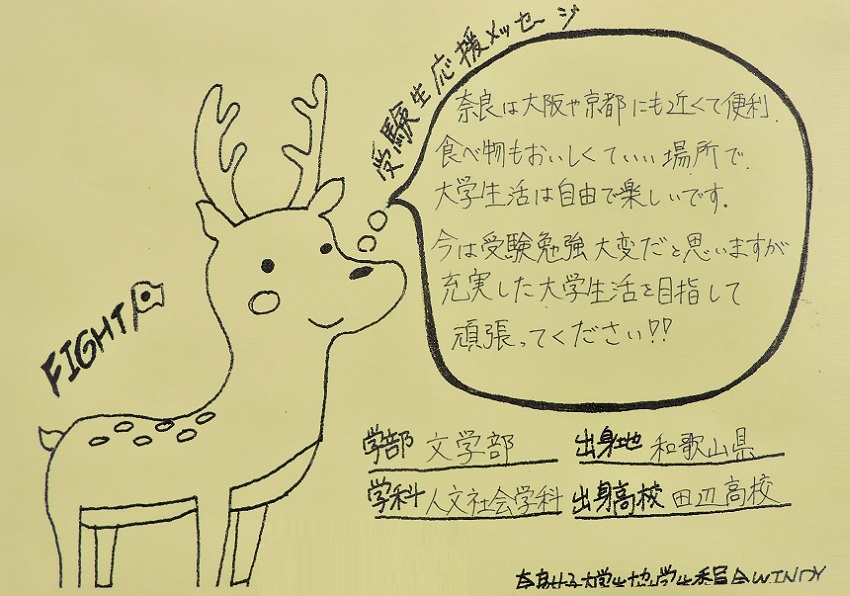 受験生応援メッセージ
奈良は大阪や京都にも近くて便利.
食べ物もおいしくていい場所で.
大学生活は自由で楽しいです.
今は受験勉強大変だと思いますが
充実した大学生活を目指して
頑張ってください!!
FIGHT
学部 文学部 出身地 和歌山県
学科 人文社会学科 出身高校 田辺高校
奈良女子大学生協学生委員会WINDY